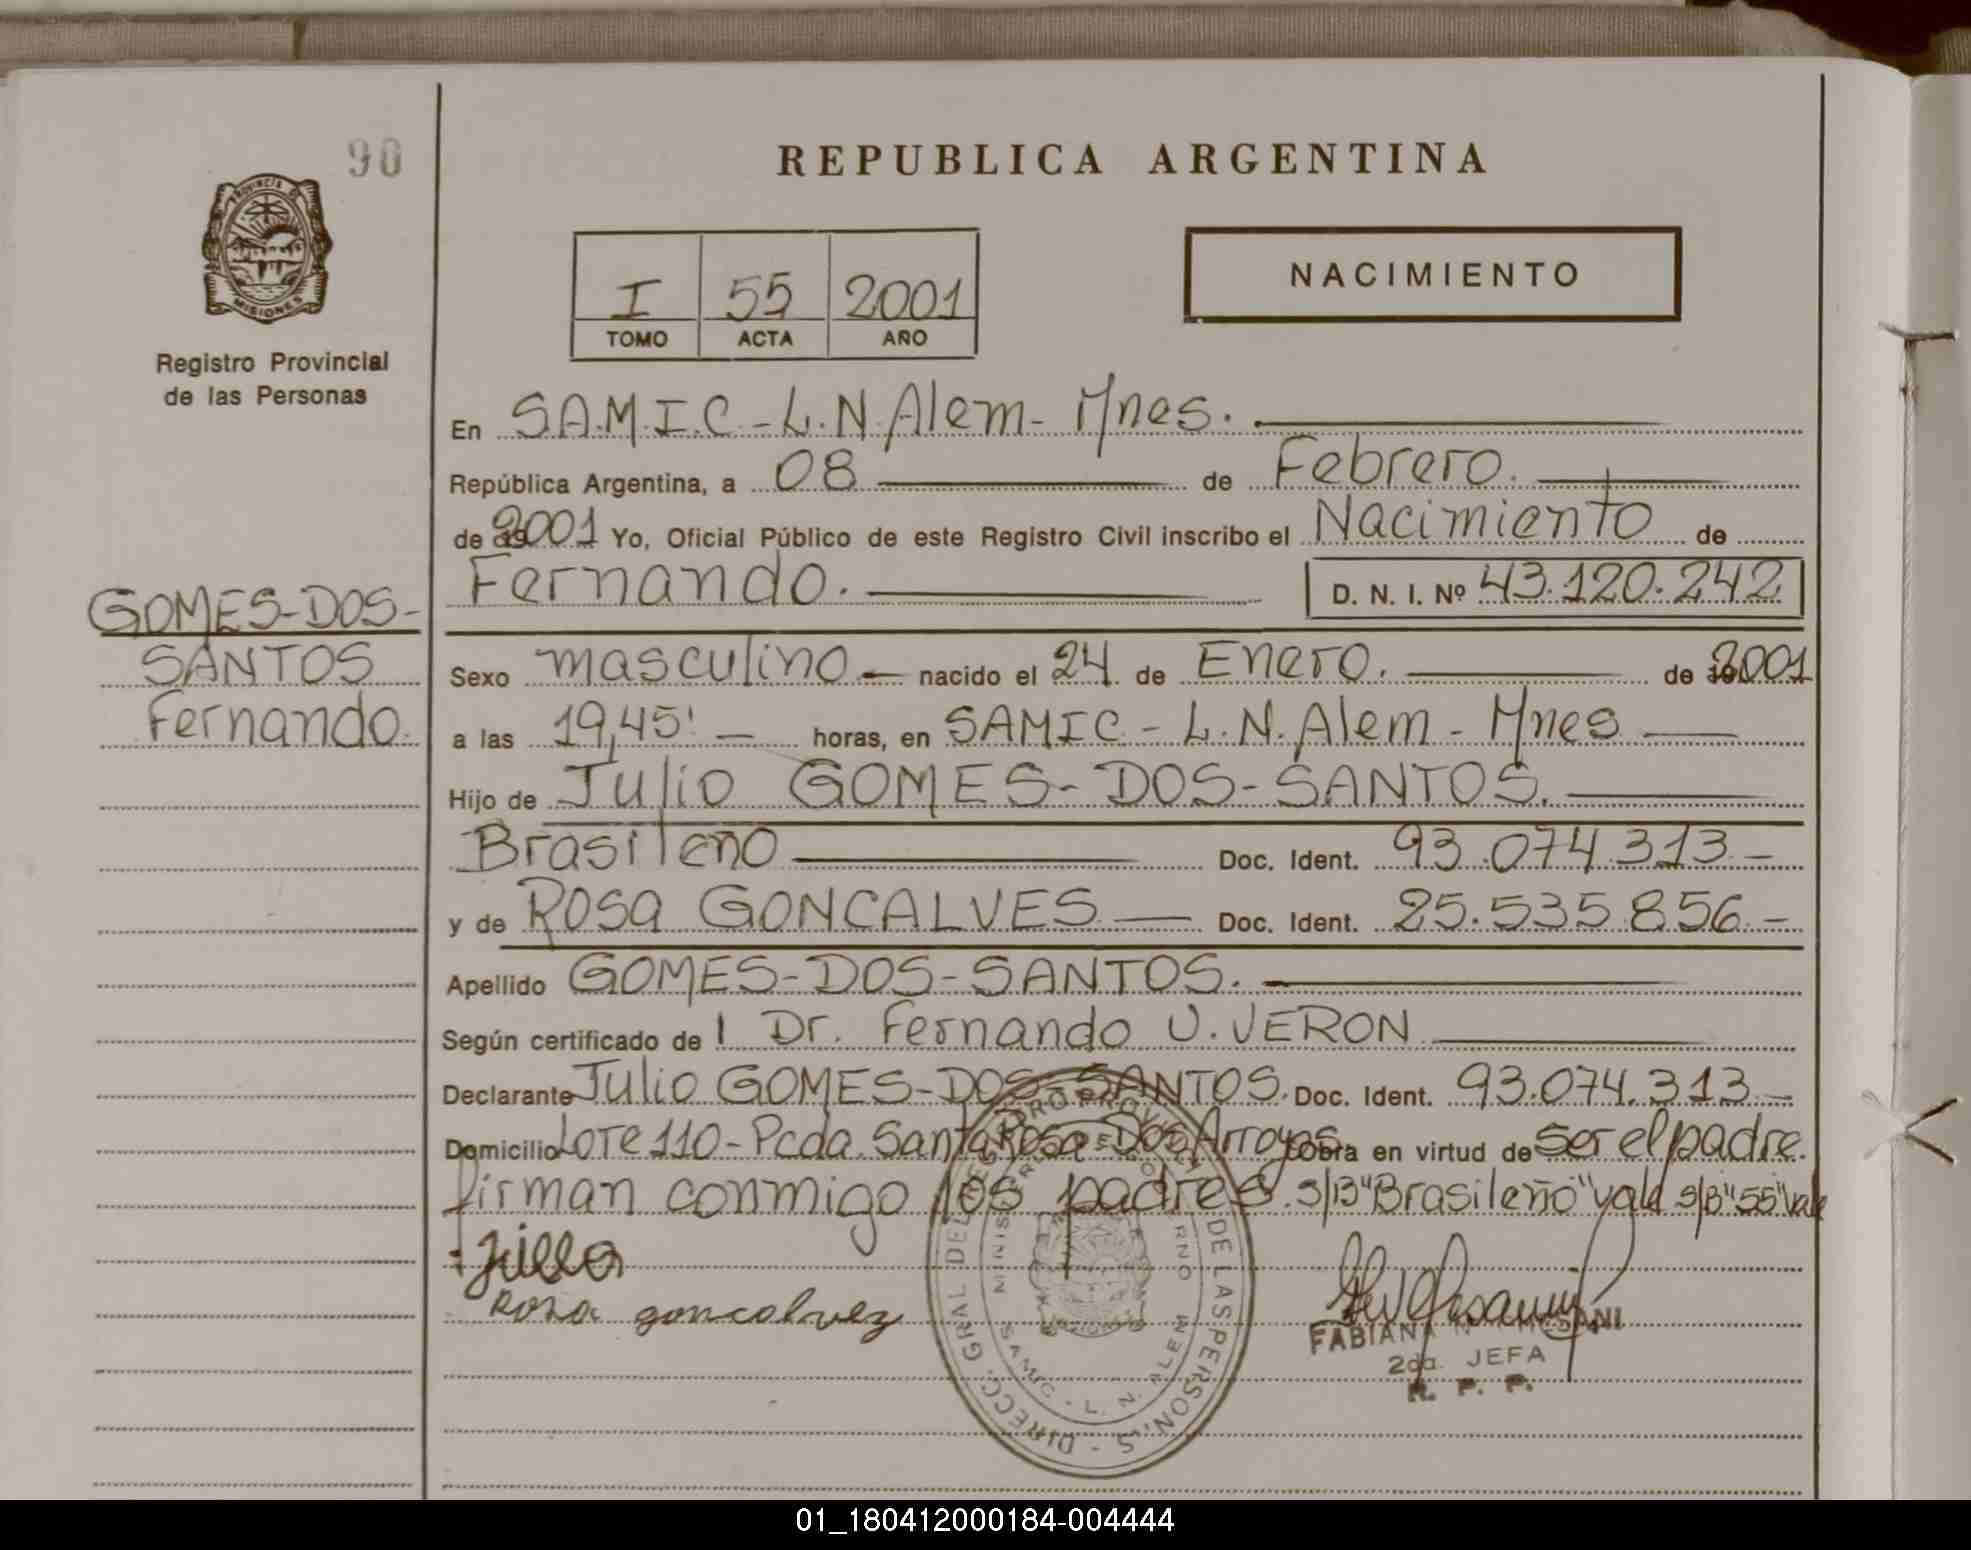 90
REPUBLICA ARGENTINA
PROVINCIA DE
MISIONES
Registro Provincial
de las Personas
I 55 2001
TOMO ACTA AÑO
NACIMIENTO
En S.A.M.I.C - L.N.Alem - Mnes.
República Argentina, a 08 de Febrero.
de 2001 Yo, Oficial Público de este Registro Civil inscribo el Nacimiento de
Fernando. D. N. I. Nº 43.120.242
GOMES-DOS-
SANTOS
Fernando.
Sexo masculino nacido el 24 de Enero. de 2001
a las 19,45' horas, en SAMIC - L.N.Alem - Mnes
Hijo de Julio GOMES-DOS-SANTOS.
Brasileño Doc. Ident. 93.074.313-
y de Rosa GONCALVES Doc. Ident. 25.535.856-
Apellido GOMES-DOS-SANTOS.
Según certificado de l Dr. Fernando U. VERON
Declarante Julio GOMES-DOS-SANTOS. Doc. Ident. 93.074.313-
Domicilio Lote 110 - Pcda. Santa Rosa - Dos Arroyos Obra en virtud de ser el padre.
firman conmigo los padres. S/B "Brasileño" vale S/B "55" vale
Rosa goncalvez
DIRECC. GRAL DEL REGISTRO PROVINCIAL DE LAS PERSONAS
MINISTERIO DE GOBIERNO
SAMIC - L. N. ALEM
MISIONES
FABIANA
2da. JEFA
R. P. P.
01_180412000184-004444